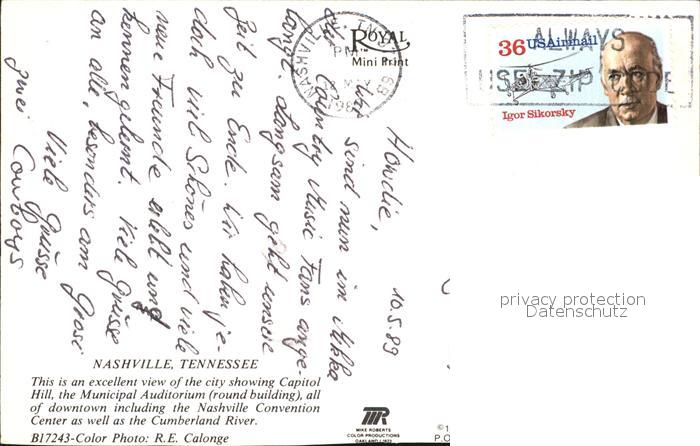 10.5.89
Howdie,
Wir sind nun im Mekka
der Country Music Fans ange-
langt. Langsam geht unsere
Zeit zu Ende. Wir haben je-
doch viel Schönes und viele
neue Freunde erlebt und
kennen gelernt. Viele Grüsse
an alle, besonders am Grosi
Viele Grüsse
zwei Cowboys
ROYAL™
Mini Print
NASHVILLE, TN
PM
MAY
ALWAYS
USE ZIP CODE
36 USAirmail
Igor Sikorsky
privacy protection
Datenschutz
NASHVILLE, TENNESSEE
This is an excellent view of the city showing Capitol
Hill, the Municipal Auditorium (round building), all
of downtown including the Nashville Convention
Center as well as the Cumberland River.
B17243-Color Photo: R.E. Calonge
MIKE ROBERTS
COLOR PRODUCTIONS
©1
P.O